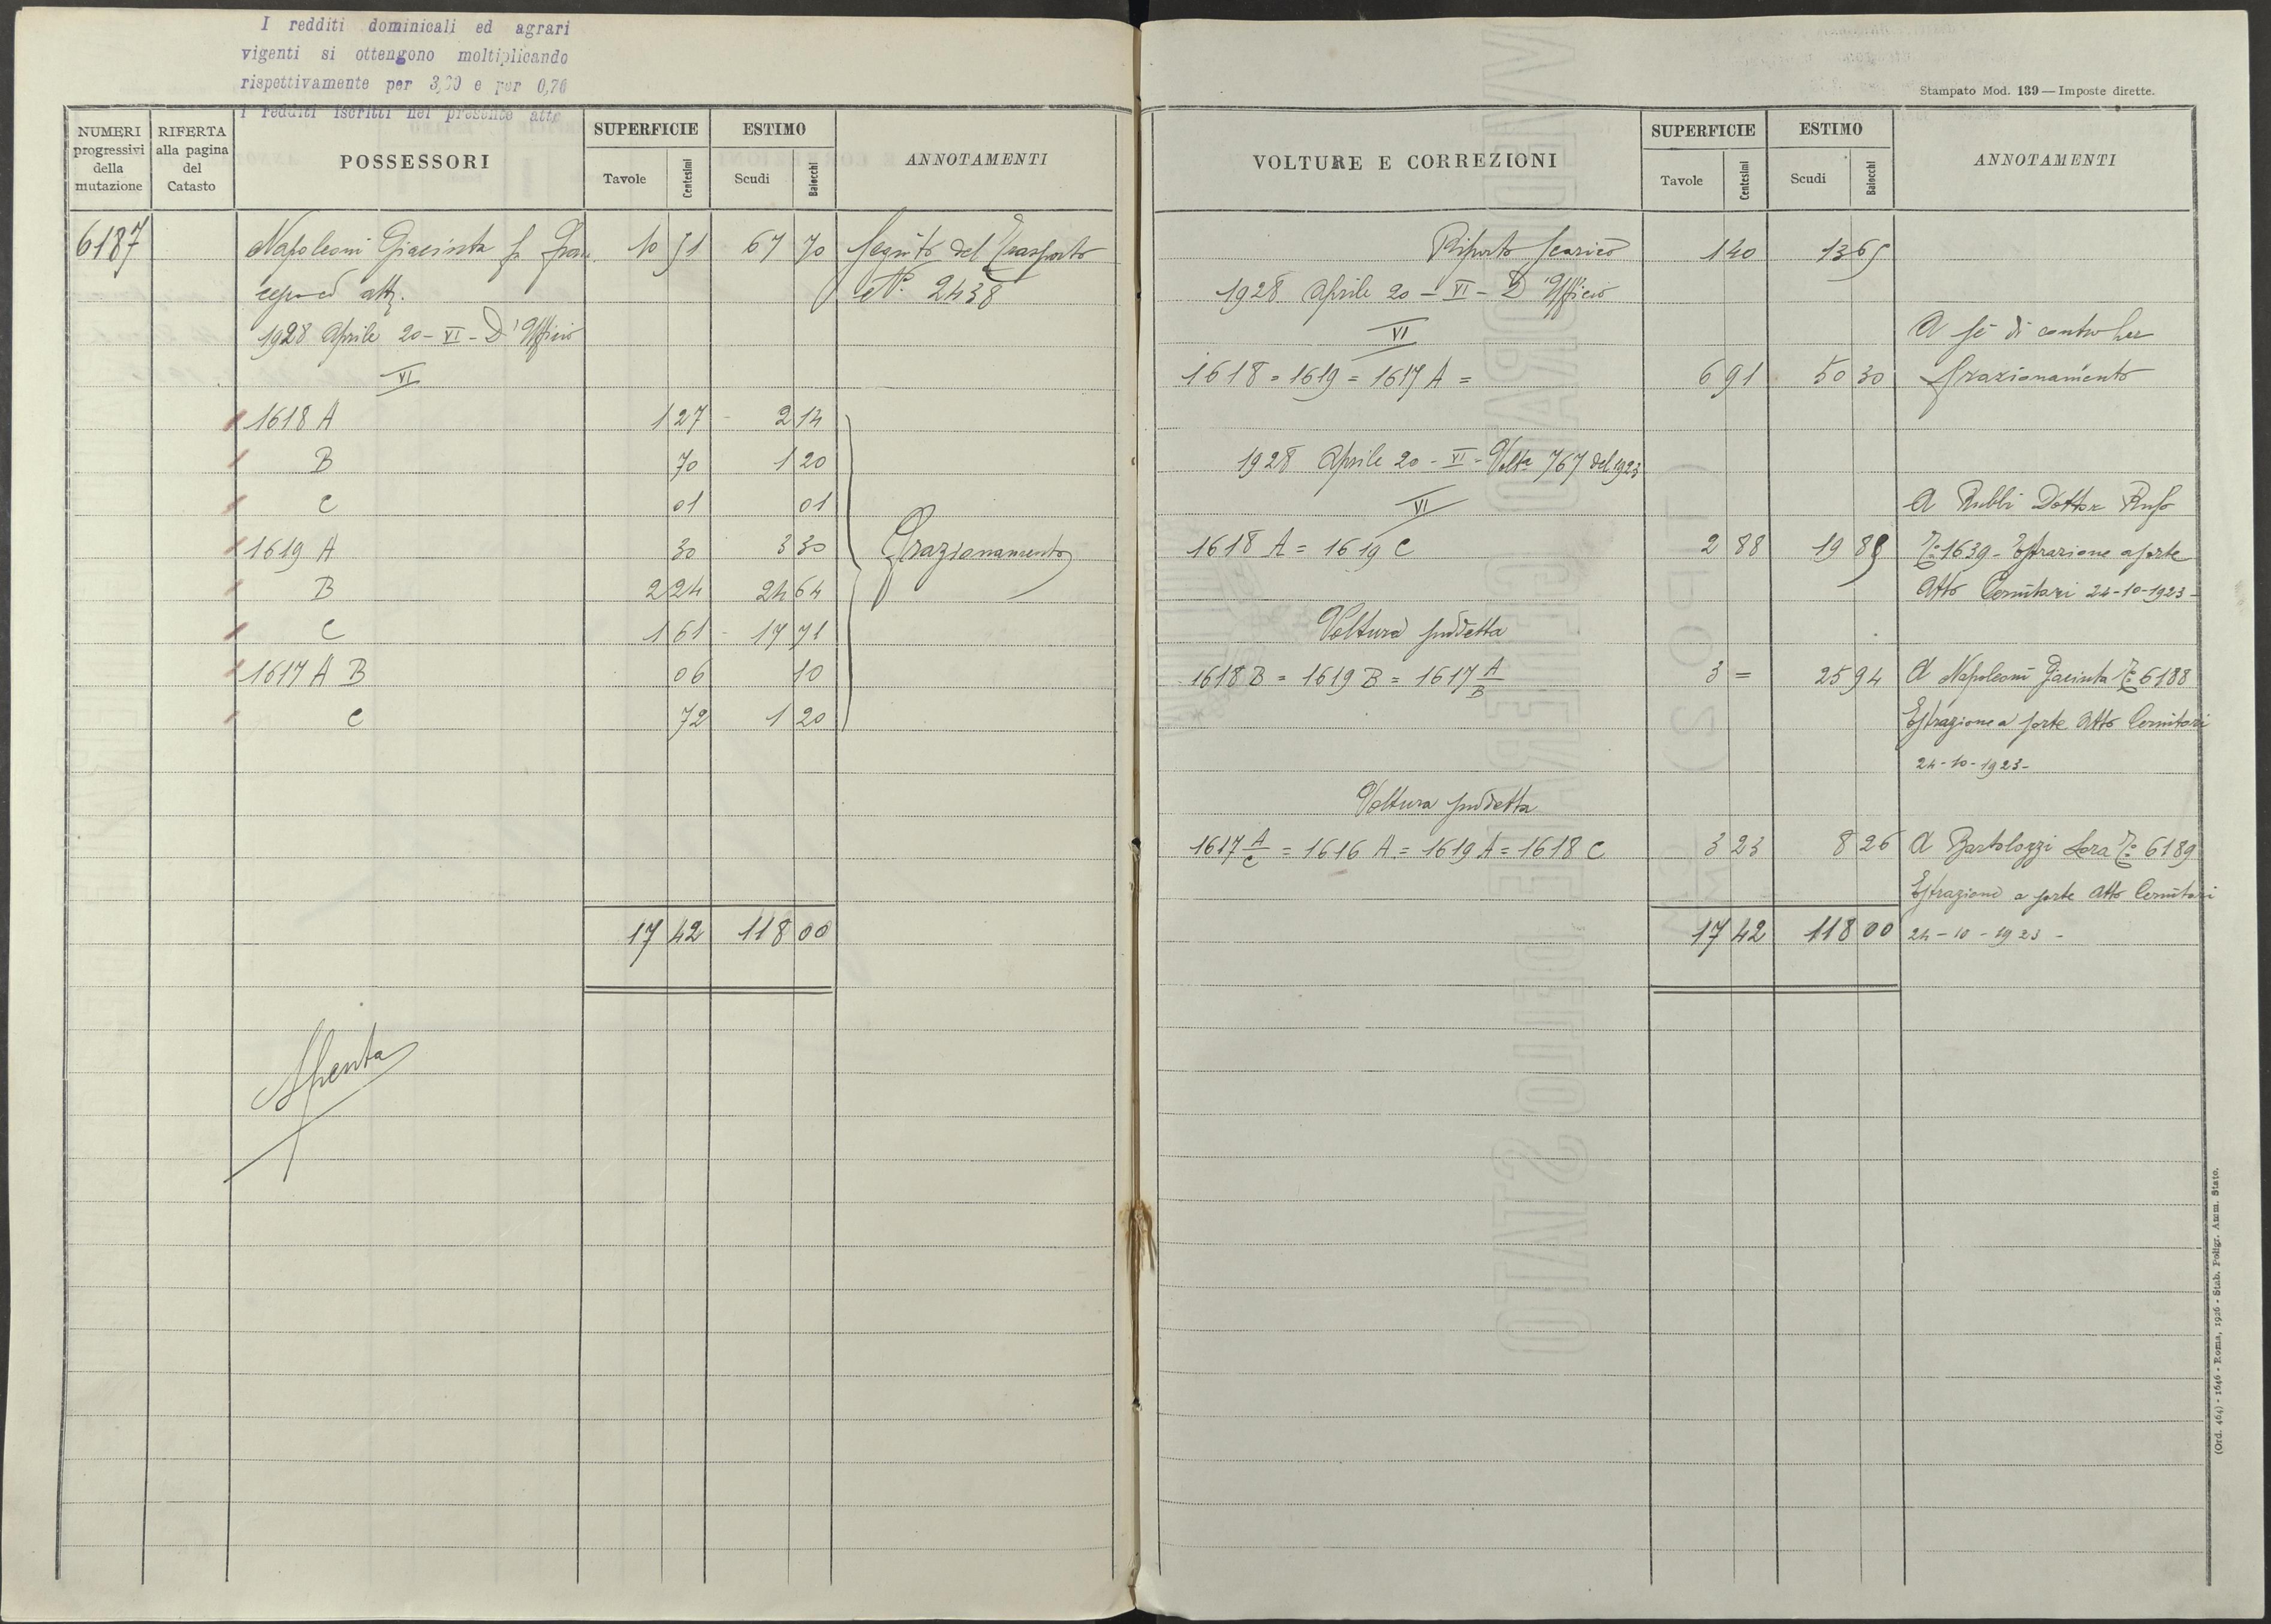 I redditi dominicali ed agrari
vigenti si ottengono moltiplicando
rispettivamente per 3,00 e per 0,76
i redditi iscritti nel presente atto
NUMERI progressivi della mutazione
RIFERTA alla pagina del Catasto
POSSESSORI
SUPERFICIE
Tavole Centesimi
ESTIMO
Scudi Baiocchi
ANNOTAMENTI
6187 Napoleoni Giacinta fu 10 51 67 70 Seguito del Trasporto
N° 2438
1928 Aprile 20 - VI - D'Ufficio
VI
1618 A 1 27 2 14
B 70 1 20
C 01 01
1619 A 30 3 30 Frazionamento
B 2 24 24 64
C 1 61 17 71
1617 A B 06 10
C 72 1 20
17 42 118 00
Spenta
Stampato Mod. 139 — Imposte dirette.
VOLTURE E CORREZIONI
SUPERFICIE
Tavole Centesimi
ESTIMO
Scudi Baiocchi
ANNOTAMENTI
Riporto scarico 1 40 13 65
1928 Aprile 20 - VI - D'Ufficio
VI A sé di contro per
1618 = 1619 = 1617 A = 6 91 50 30 frazionamento
1928 Aprile 20 - VI - Volta 767 del 1923
VI A Rubbi Dottor Rufo
1618 A = 1619 C 2 88 19 85 1639 - Estrazione a sorte
Atto Cernitori 24-10-1923 -
Voltura suddetta
1618 B = 1619 B = 1617 A/B 3 = 25 94 A Napoleoni Giacinta 6188
Estrazione a sorte Atto Cernitori
24-10-1923-
Voltura suddetta
1617 A/C = 1616 A = 1619 A = 1618 C 3 23 8 26 A Bartolozzi 6189
Estrazione a sorte Atto Cernitori
17 42 118 00 24-10-1923 -
(Ord. 464) - 1646 - Roma, 1926 - Stab. Poligr. Amm. Stato.